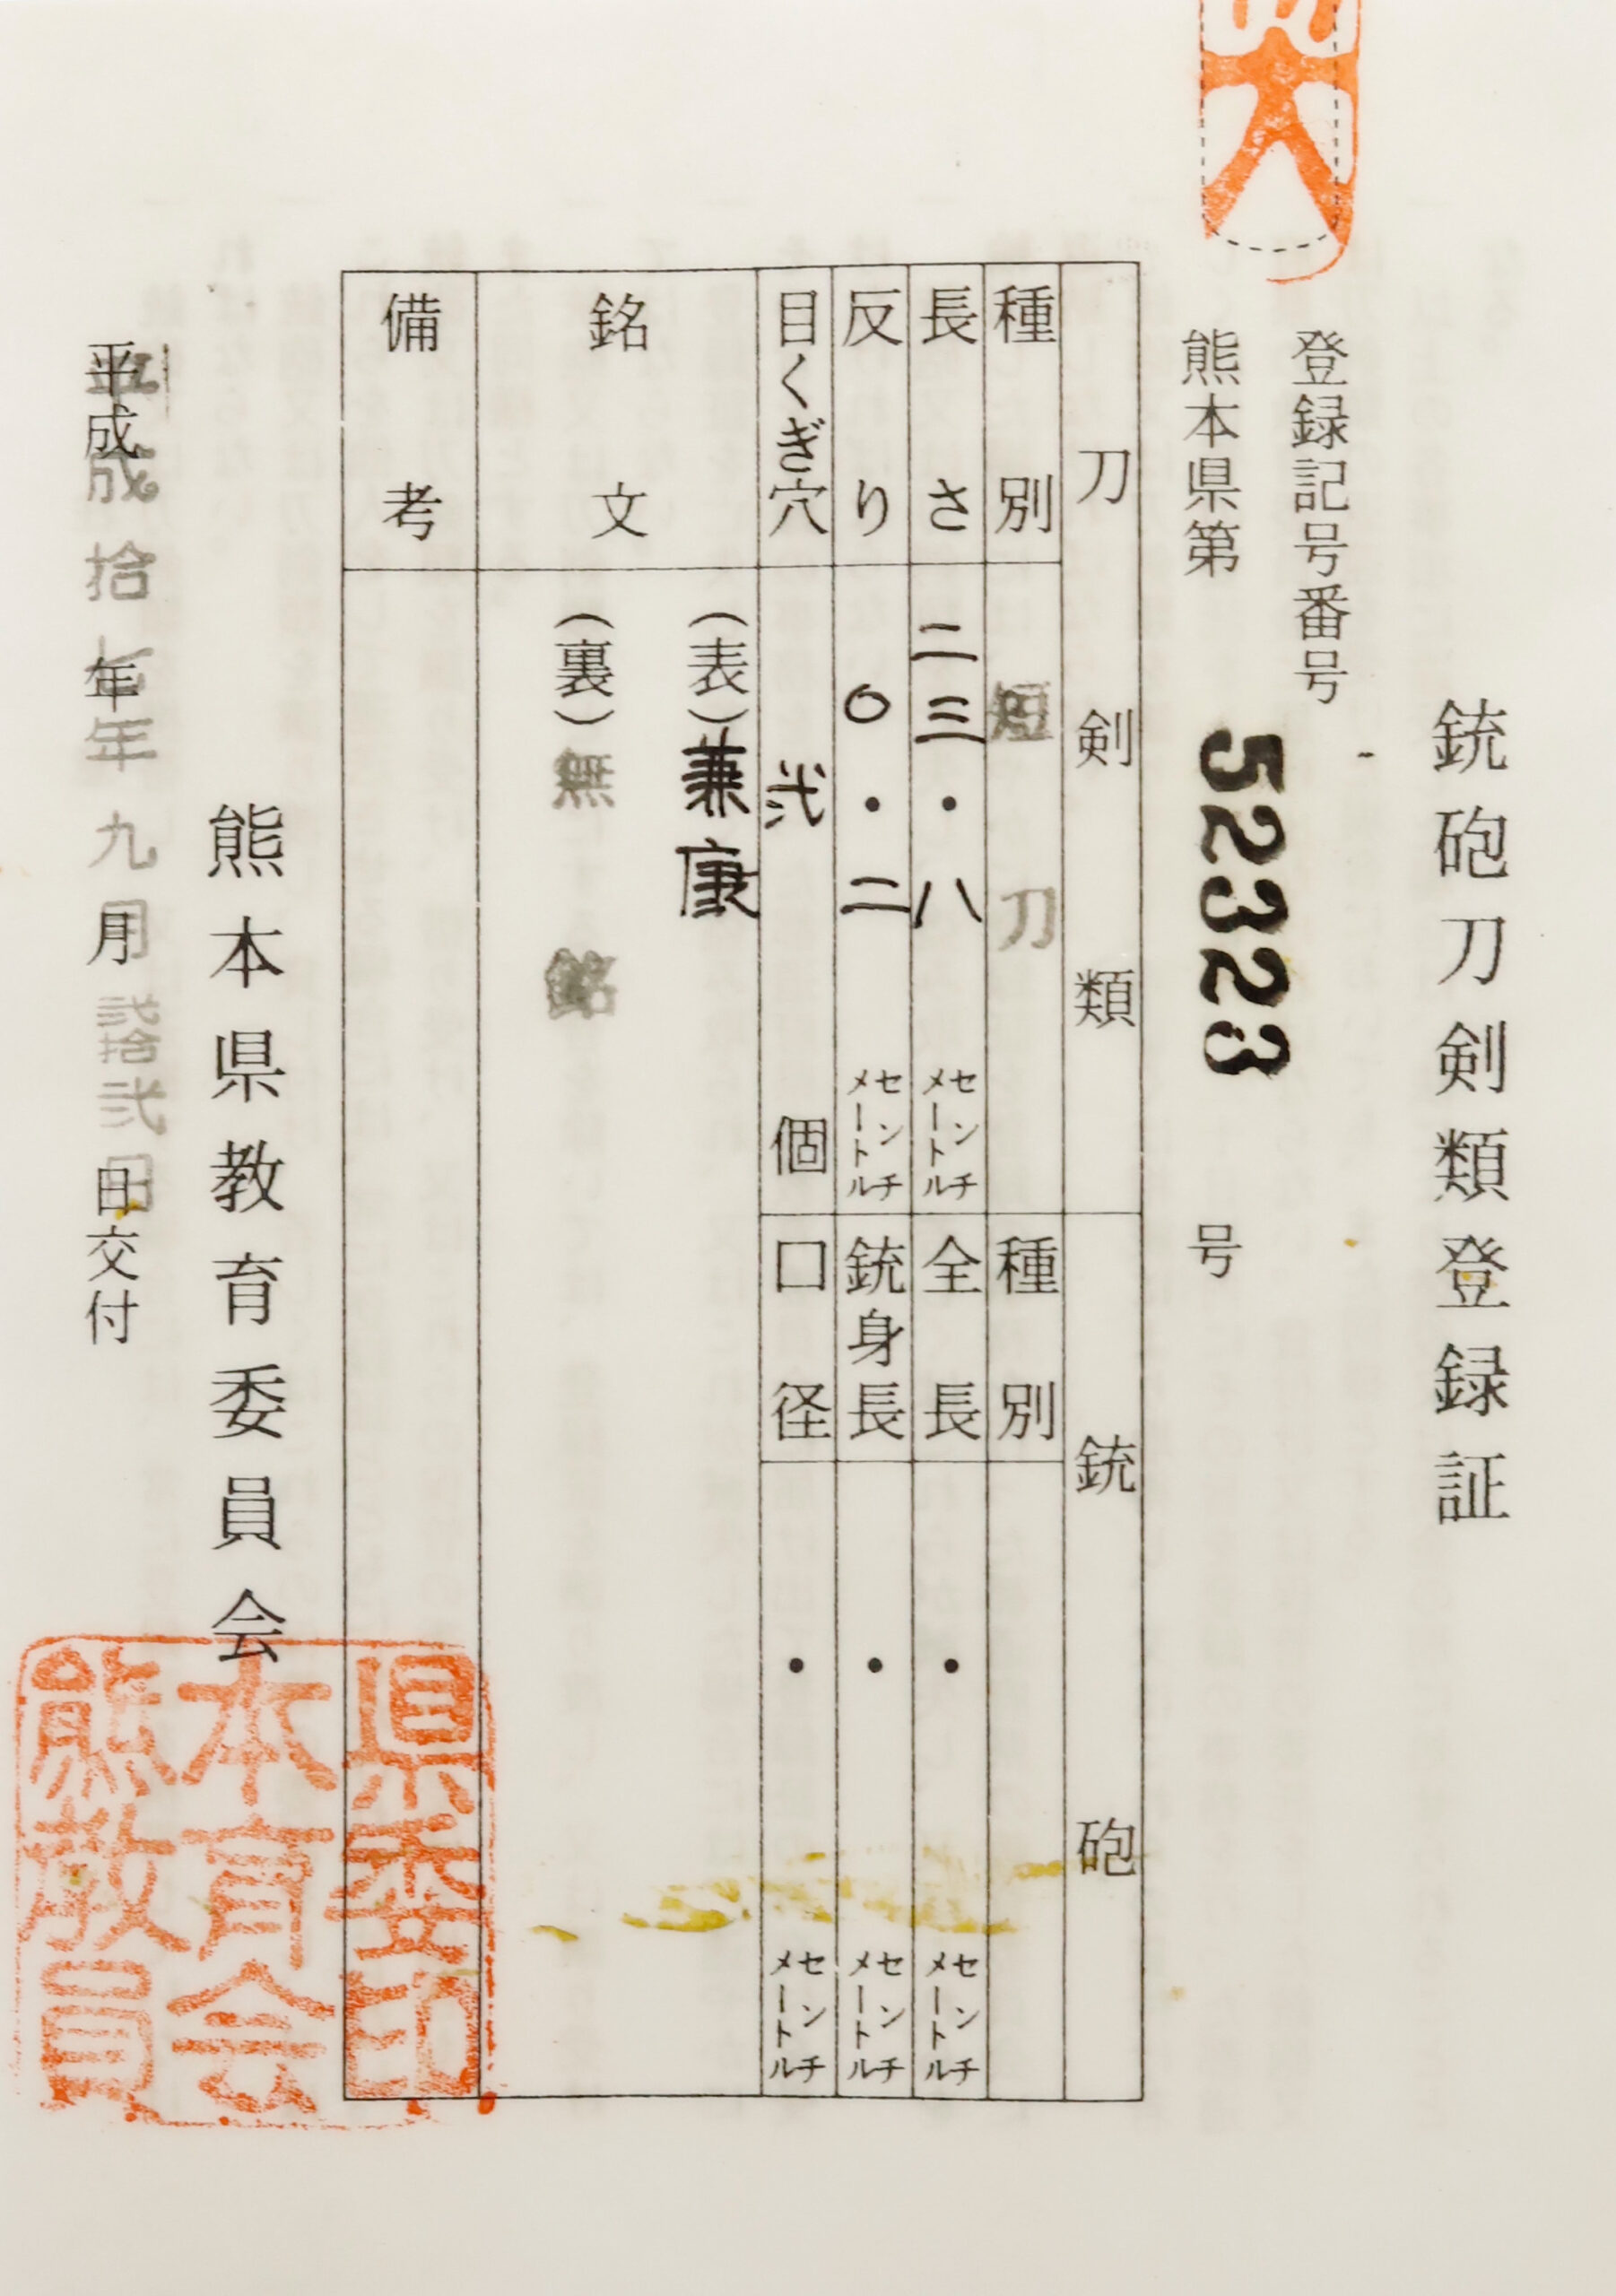 銃砲刀剣類登録証
登録記号番号
熊本県第 52323 号
刀剣類
種別 短刀
長さ 二三・八 センチメートル
反り 〇・二 センチメートル
目くぎ穴 弐 個
銘文
(表)兼康
(裏)無銘
備考
銃砲
種別
全長 ・ センチメートル
銃身長 ・ センチメートル
口径 ・ センチメートル
熊本県教育委員会
平成拾七年九月弐拾弐日交付
県委印
本育会
熊教員